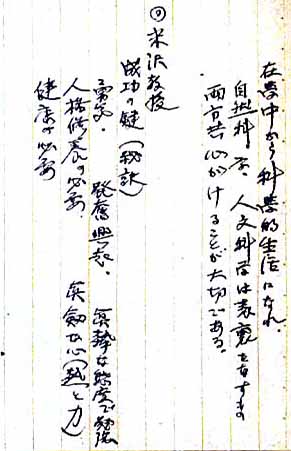 在学中から科学的生活になれ、
自然科学、人文科学は表裏をなすもの
両方共心がけることが大切である。
◎米沢教授
成功の鍵（秘訣）
勇気、発奮興起、真摯な態度で勉強
人格修養の必要、真剣な心（熱と力）
健康の必要